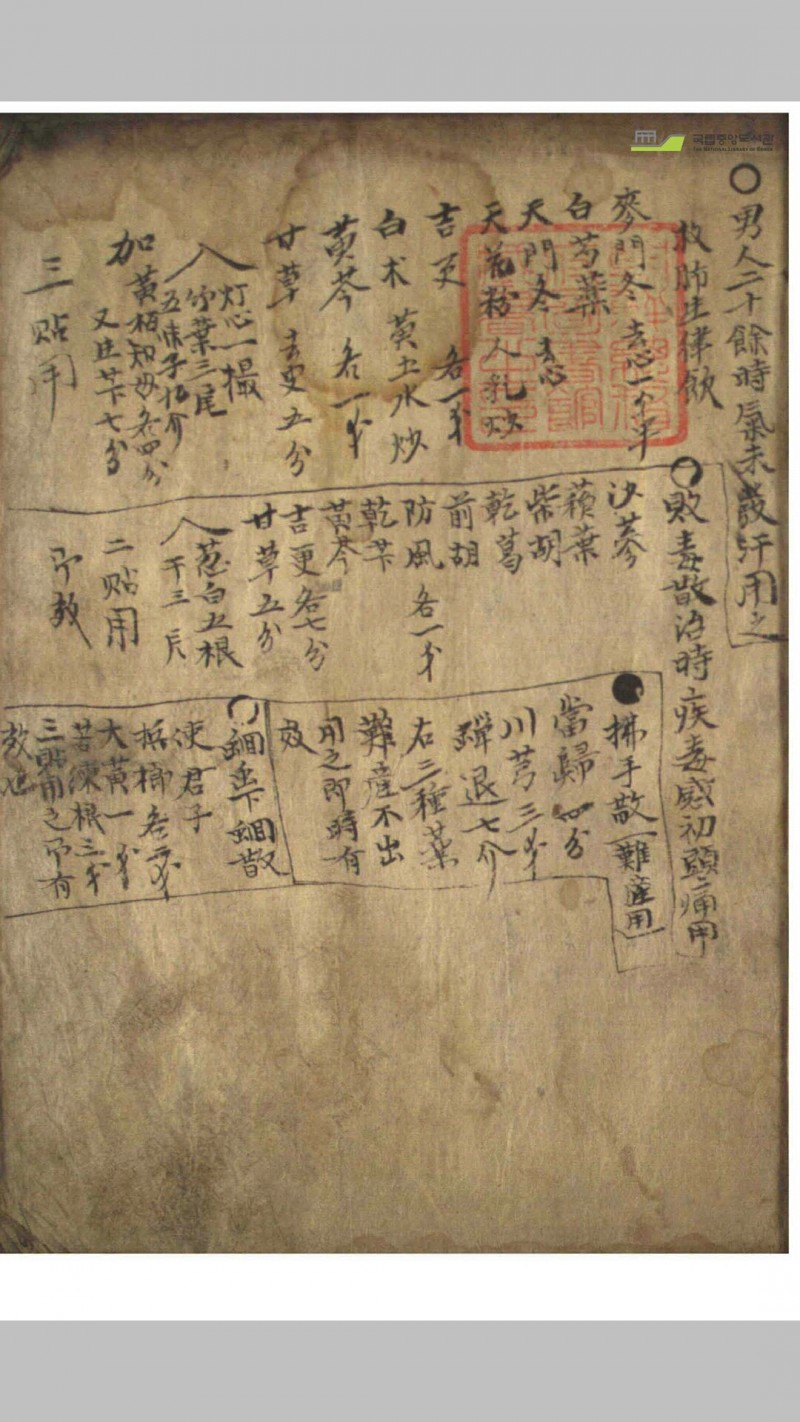 국립중앙도서관
THE NATIONAL LIBRARY OF KOREA
男人二十餘時氣未發汗用之
救肺生津飲
麥門冬去心一戔半
白芍藥
天門冬去心
天花粉人乳炒
吉更各一戔
白朮黃土水炒
黃芩各一戔
甘草去皮五分
入灯心一撮
竹葉三尾
五味子拾介
加黃栢知母各四分
又生芐七分
三貼用
敗毒散治時疾毒感初頭痛用
沙蔘
蘓葉
柴胡
乾葛
前胡
防風各一戔
乾芐
黃芩
吉更各七分
甘草五分
入葱白五根
干三片
二貼用
卽效
拂手散難產用
當歸四分
川芎三戔
蟬退七介
右三種藥
難產不出
用之卽時有
效
蛔虫下蛔散
使君子
梹榔各二戔
大黃一戔
苦練根三戔
三貼用之卽有
效也